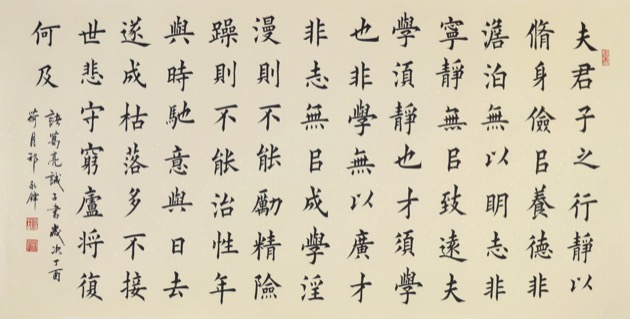 夫君子之行靜以
脩身儉㠯養德非
澹泊無以明志非
寧靜無㠯致遠夫
學須靜也才須學
也非學無以廣才
非志無㠯成學淫
漫則不能勵精險
躁則不能治性年
與時馳意與日去
遂成枯落多不接
世悲守窮廬将復
何及
諸葛亮誡子書歲次丁酉
荷月祁永